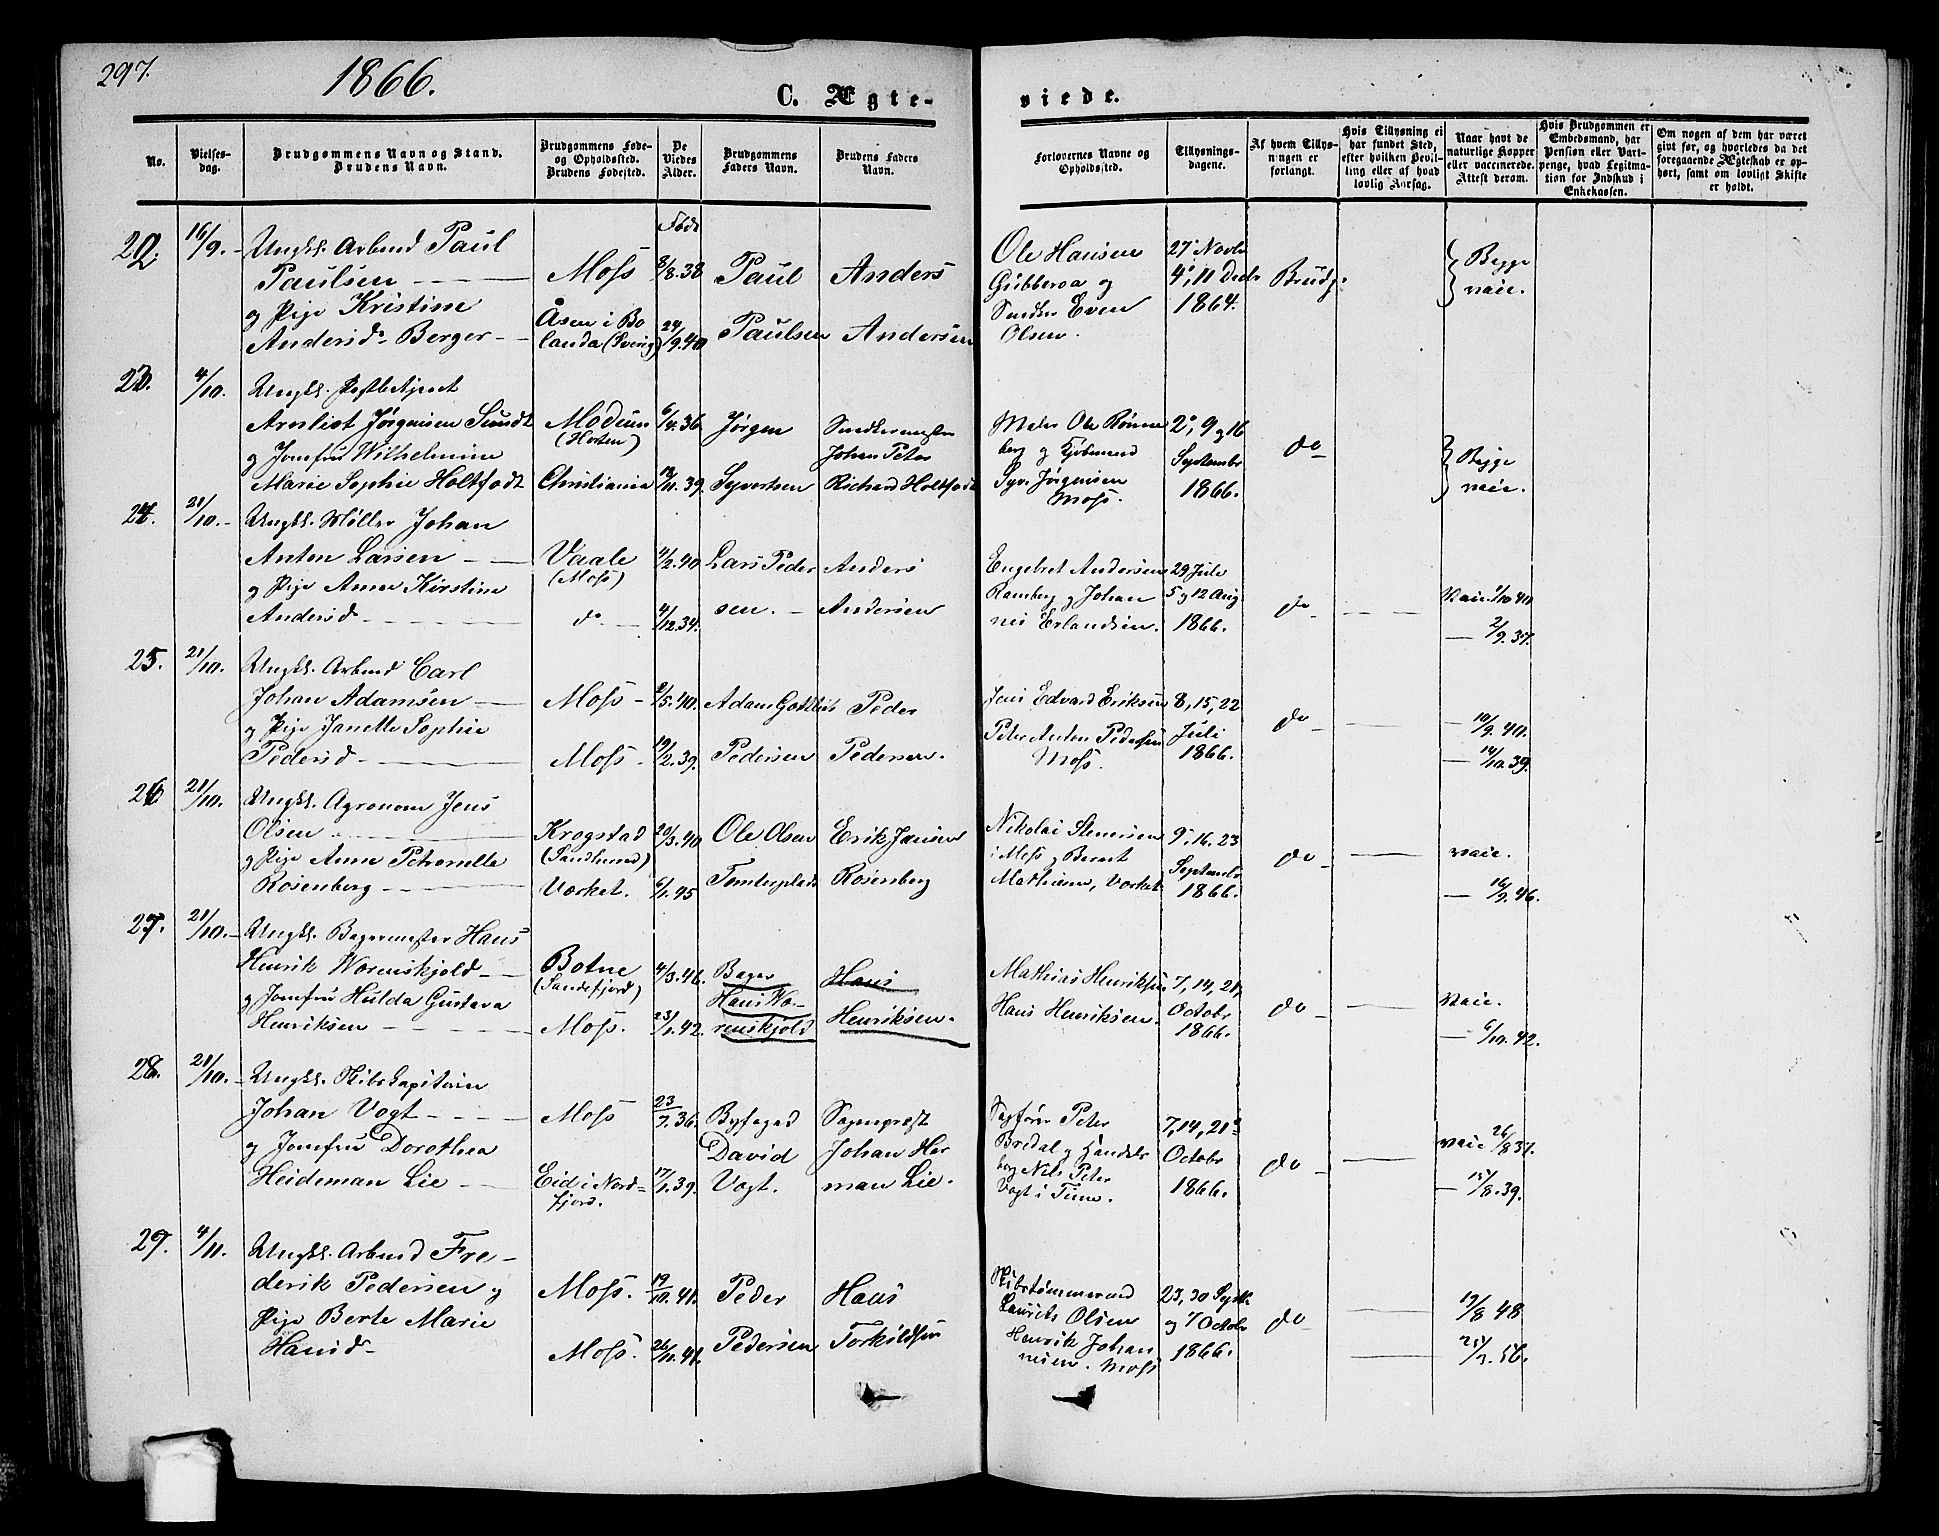 297.
1866.
C. Ægte-
viede.
No.
Vielses-
dag.
Brudgommens Navn og Stand.
Brudens Navn.
Brudgommens Føde-
og Opholdssted.
Brudens Fødested.
De
Viedes
Alder.
Brudgommens
Faders Navn.
Brudens Faders
Navn.
Forlovernes Navne og
Opholdssted.
Tillysnings-
dagene.
Af hvem Tillys-
ningen er
forlangt.
Hvis Tillysning ei
har fundet Sted,
efter hvilken Bevil-
ling eller af hvad
lovlig Aarsag.
Naar havt de
naturlige Kopper
eller vaccinerede.
Attest derom.
Hvis Brudgommen er
Embedsmand, har
Pension eller Vart-
penge, hvad Legitima-
tion for Indskud i
Enkekassen.
Om nogen af dem har været
givt før, og hvorledes da det
foregaaende Ægteskab er op-
hørt, samt om lovligt Skifte
er holdt.
22. 16/9. Ungk. Arbmd Paul
Paulsen
og Pige Kristine
Andersd. Berger
Moss
Åsen i Bo
landa (Sverig)
Født
8/8.38
24/9.40
Paul
Paulsen
Anders
Andersen
Ole Hansen
Gubberoa og
Snedker Even
Olsen.
27 Novbr
4, 11 Decbr
1864.
Brudg.
Begge
vacc.
23. 4/10. Ungk. Postbetjent
Arnliot Jørgensen Sundt
og Jomfru Wilhelmine
Marie Sophie Holtfodt
Modum
(Horten)
Christiania
6/4.36
18/11.39.
Jørgen
Syvertsen
Snedkermester
Johan Peter
Richard Holtfodt
Maler Ole Rønne
berg og Kjøbmand
Syv. Jørgensen
Moss.
2, 9 og 16
Septembr
1866.
do
Begge
vacc.
24. 21/10. Ungk. Møller Johan
Anton Larsen
og Pige Anne Kirstine
Andersd
Vaale
(Moss)
do
4/2.40
4/12.34.
Lars Peder
sen.
Anders
Andersen
Engebret Andersen
Ramberg og Johan
nes Erlandsen.
29 Juli
5 og 12 Aug
1866.
do
Vacc. 9/10 40
2/9.37.
25. 21/10. Ungk. Arbmd Carl
Johan Adamsen
og Pige Janette Sophie
Pedersd
Moss
Moss
9/5.40.
19/2.39.
Adam Gottlieb
Pedersen
Peder
Pedersen.
Jens Edvard Eriksen
Peter Anton Pedersen
Moss.
8, 15, 22
Juli
1866.
do
10/9.40.
14/10.39.
26. 21/10. Ungk. Agronom Jens
Olsen
og Pige Anne Petronelle
Rosenberg
Krogstad
(Sandlund)
Vorket.
20/3.40
6/1.45
Ole Olsen
Tomterplads
Erik Jansen
Rosenberg
Nikolai Stenersen
i Moss og Bernt
Mathiesen, Vorket
9. 16. 23
Septembr
1866.
do
vacc.
16/9.46.
27. 21/10. Ungk. Bagermester Hans
Henrik Wormskjold
og Jomfru Hulda Gustava
Henriksen
Botne
(Sandefjord)
Moss.
4/3.46.
23/1.42.
Bager
Hans Wo-
renskjold
Hans
Henriksen.
Mathias Henriksen
Hans Henriksen.
7, 14, 21,
Octobr
1866.
do
Vacc.
6/10.42.
28. 21/10. Ungk. Skibskapitain
Johan Vogt
og Jomfru Dorothea
Heideman Lie
Moss
Eid i Nord-
fjord.
23/7.36.
17/1.39.
Byfoged
David
Vogt.
Sogneprest
Johan Her
man Lie.
Sagfører Peter
Bredal og Handels
borg Nils Peter
Vogt i Timme.
7, 14, 21
Octobr
1866.
do
vacc 26/8 37.
15/8.39.
29. 4/11. Ungk. Arbmd Fre-
derik Pedersen og
Pige Berte Marie
Hansd
Moss.
Moss.
19/10.41.
26/11.41.
Peder
Pedersen
Hans
Torkildsen
Skibstømmermd
Laurits Olsen
Henrik Johan
nesen. Moss
23, 30 Septbr
og 7 Octobr
1866.
do
19/8 48